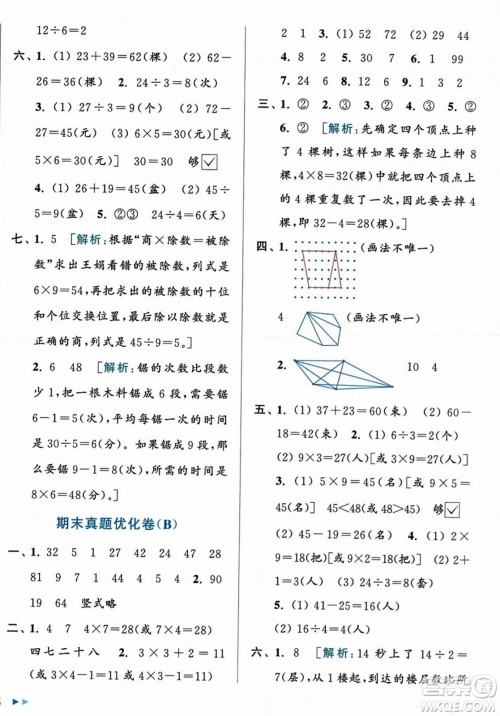 12÷6=2
六、1. (1) 23+39=62(棵) (2) 62-
26=36(棵) 2. 24÷3=8(次)
3. (1) 27÷3=9(个) (2) 18+
27=45(元) (3) 6×5=30(元)[或
5×6=30(元)] 30=30 够
4. (1) 26+19=45(盆) (2) 45÷
5=9(盆) 5. ②③ 24÷4=6(页)
七、1. 5 [解析:根据“商×除数=被除
数”求出王娟看错的被除数,列式是
6×9=54,再把被除数的十位
和个位交换位置,用交换后的数除以
9,得出真正的商是45÷9=5。]
2. 6 48 [解析:锯的次数比段数
少1。把一根木料锯成4段,需要锯
4-1=3(次),因此每次用时是
18÷3=6(分)。如果锯成9段,需
要锯9-1=8(次),用时是
8×6=48(分)。]
期末真题优化卷(B)
一、1. 32 5 1 27 48 28
81 4 37 43 42 4 2. 90
19 64 竖式略
二、1. 4 7 4×7=28 7×4=28
四七二十八 2. 3×3×2 4×3
2 1 2 1 3. 54 6 9
4. 8 9 5. 四 8 6. > < <
7. 24 12 6 8. 9 9. 1 32
三、1. ② 2. ② 3. ② 4. ③ 5. ②
6. ① 7. ② [解析:先确定四个顶点上种
了4棵树,这样如果每条边上种8棵
树,一共要种4×8=32(棵),4个顶
点上的4棵重复数了一次,所以要减
掉,即32-4=28(棵)。]
四、1. (画法不唯一)
4 (画法不唯一)
2. 10 4
五、1. (1) 37+23=60(束) (2) 60-
18=42(束) 2. (1) 42÷6=7(束)
(2) 7-4=3(束) 3. (1) 18÷
2=9(人) (2) 5×9=45(名)[或9×
5=45(名)] 45<48 够
4. (1) 9×2=18(把)[或2×9=
18(把)] (2) 2+1=3(把)
24÷3=8(套)
六、1. 8 [解析:14秒上了14÷2=
7(层),从1楼起,到达的楼层数比所